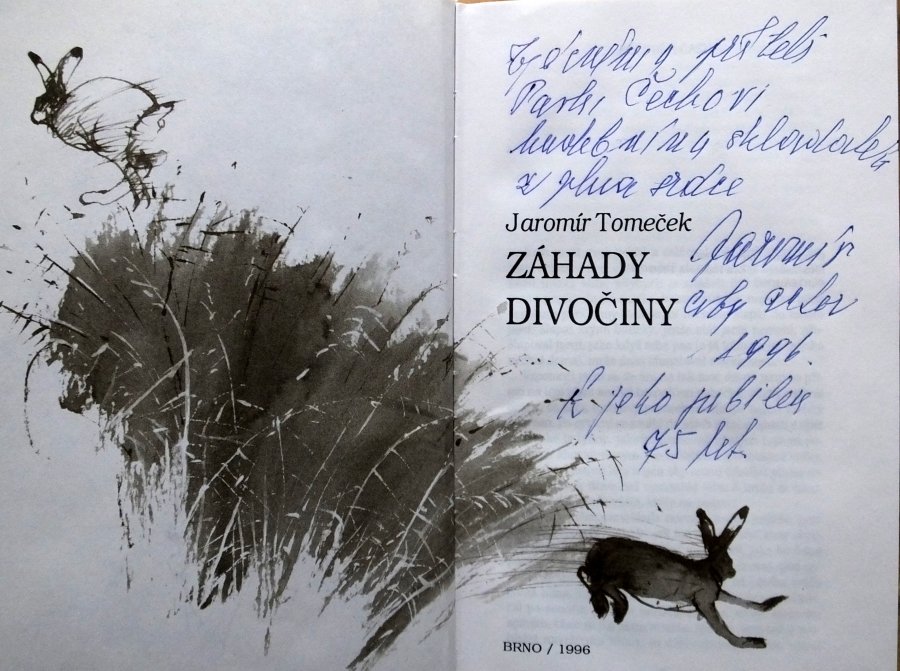 příteli
Čechovi
hudebnímu skladateli
z plna srdce
Jaromír Tomeček
ZÁHADY
DIVOČINY
Jaromír
autor
1996.
K jeho jubileu
75 let.
BRNO / 1996